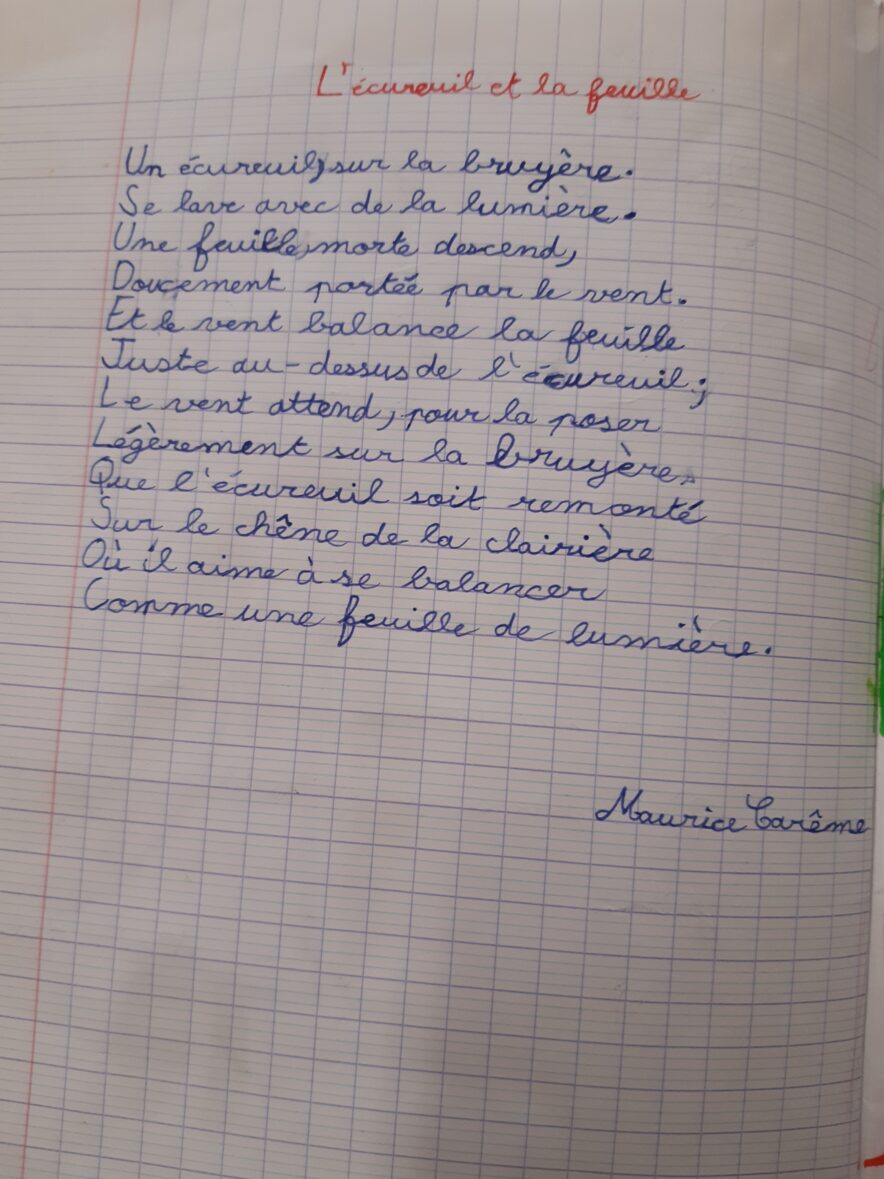 L'écureuil et la feuille
Un écureuil, sur la bruyère.
Se lave avec de la lumière.
Une feuille, morte descend,
Doucement portée par le vent.
Et le vent balance la feuille
Juste au-dessus de l'écureuil;
Le vent attend, pour la poser
Légèrement sur la bruyère,
Que l'écureuil soit remonté
Sur le chêne de la clairière
Où il aime à se balancer
Comme une feuille de lumière.
Maurice Carême